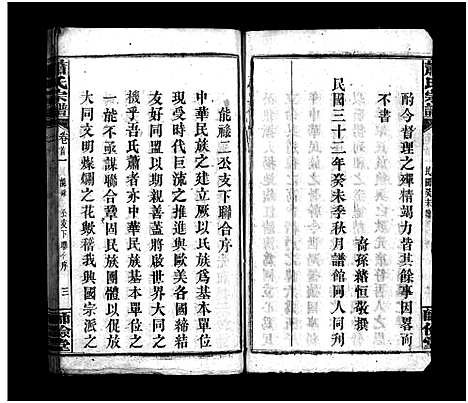 酌今者理之殫精竭力皆其餘事因畧而
不書
裔孫緒恆敬撰
民國三十二年癸未季秋月譜館同人同刊
蕭氏宗譜
師儉堂
蕭氏宗譜
卷首一
公支下聯合序
三
師儉堂
能祿三公支下聯合序
中華民族之建立厥以民族爲基本單位
現受時代巨流之推進與歐美各國締結
友好同盟以期親善蓋將啟世界大同之
機乎吾氏蕭者亦中華民族基本單位之
一能不亟謀聯合鞏固民族團體以促放
大同文明燦爛之花歟稽我與國宗派之